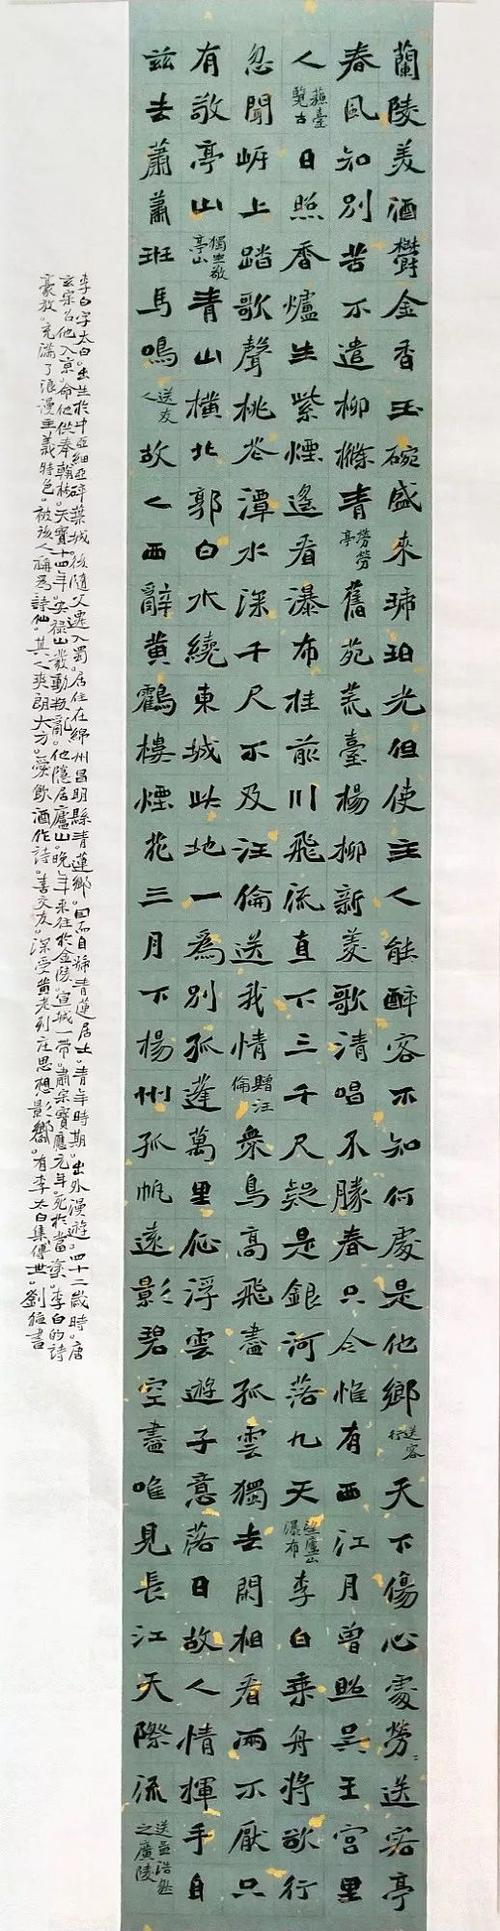 蘭陵美酒鬱金香玉碗盛來琥珀光但使主人能醉客不知何處是他鄉送客行天下傷心處勞〻送客亭
春風知別苦不遣柳條青勞勞亭舊苑荒臺楊柳新菱歌清唱不勝春只今惟有西江月曾照吳王宮里
人蘇臺覽古日照香爐生紫煙遙看瀑布挂前川飛流直下三千尺疑是銀河落九天望廬山瀑布李白乘舟將欲行
忽聞岸上踏歌聲桃花潭水深千尺不及汪倫送我情贈汪倫衆鳥高飛盡孤雲獨去閑相看兩不厭只
有敬亭山獨坐敬亭山青山橫北郭白水繞東城此地一爲別孤蓬萬里征浮雲遊子意落日故人情揮手自
茲去蕭蕭班馬鳴送友人故人西辭黃鶴樓煙花三月下楊州孤帆遠影碧空盡唯見長江天際流送孟浩然之廣陵
李白字太白。出生於中亞細亞碎葉城。後隨父遷入蜀。居住在綿州昌明縣青蓮鄉。因而自號青蓮居士。青年時期。出外漫遊。四十二歲時。唐
玄宗召他入京。命他供奉翰林。天寶十四年。安祿山發動叛亂。他隱居廬山。晚年來往於金陵。宣城一帶。肅宗寶應元年。死於當塗。李白的詩
豪放。充滿了浪漫主義特色。被後人稱爲詩仙。其人爽朗大方。愛飲酒作詩。喜交友。深受黃老列莊思想影響。有李太白集傳世。劉書